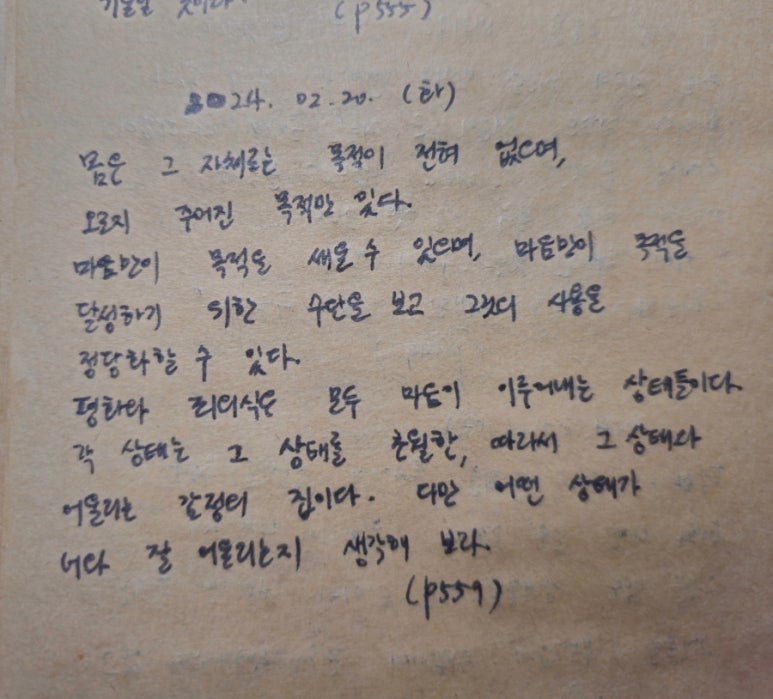 기울일 것이다.
(p555)
2024. 02. 20. (화)
몸은 그 자체로는 목적이 전혀 없으며,
오로지 주어진 목적만 있다.
마음만이 목적을 세울 수 있으며, 마음만이 목적을
달성하기 위한 수단을 보고 그것의 사용을
정당화할 수 있다.
평화와 죄의식은 모두 마음이 이루어내는 상태들이다.
각 상태는 그 상태를 초월한, 따라서 그 상태와
어울리는 감정의 집이다. 다만 어떤 상태가
너와 잘 어울리는지 생각해 보라.
(p559)